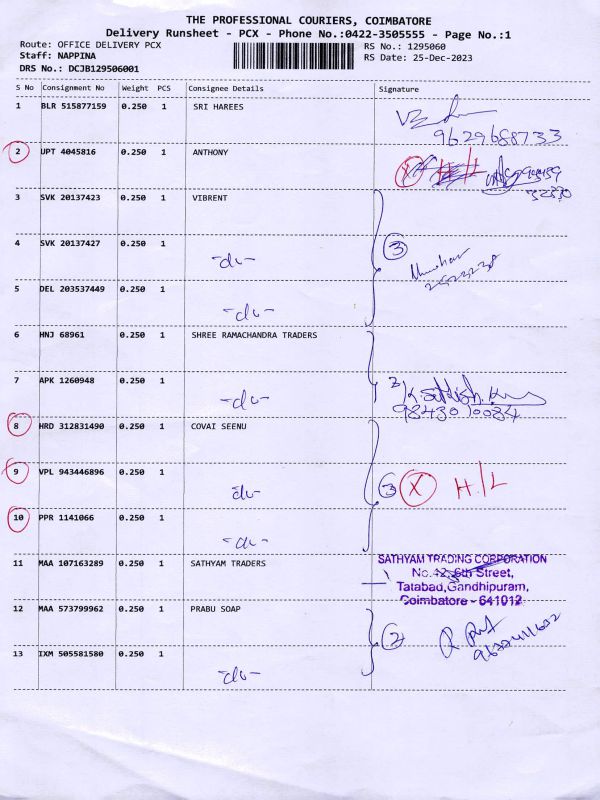 THE PROFESSIONAL COURIERS, COIMBATORE
Delivery Runsheet - PCX - Phone No.:0422-3505555 - Page No.:1
Route: OFFICE DELIVERY PCX
RS No.: 1295060
Staff: NAPPINA
RS Date: 25-Dec-2023
DRS No.: DCJB129506001
S No Consignment No Weight PCS Consignee Details Signature
1 BLR 515877159 0.250 1 SRI HAREES
9629688733
2 UPT 4045816 0.250 1 ANTHONY
X H/L
3 SVK 20137423 0.250 1 VIBRENT
4 SVK 20137427 0.250 1 -do- 3
5 DEL 203537449 0.250 1 -do-
6 HNJ 68961 0.250 1 SHREE RAMACHANDRA TRADERS
7 APK 1260948 0.250 1 -do- 2 K. Sathish. Kumar
9843010084
8 HRD 312831490 0.250 1 COVAI SEENU
9 VPL 943446896 0.250 1 do- 3 X H/L
10 PPR 1141066 0.250 1 -do-
11 MAA 107163289 0.250 1 SATHYAM TRADERS
SATHYAM TRADING CORPORATION
No.42, 6th Street,
Tatabad, Gandhipuram,
Coimbatore - 641012
12 MAA 573799962 0.250 1 PRABU SOAP
2
13 IXM 505581580 0.250 1 -do-